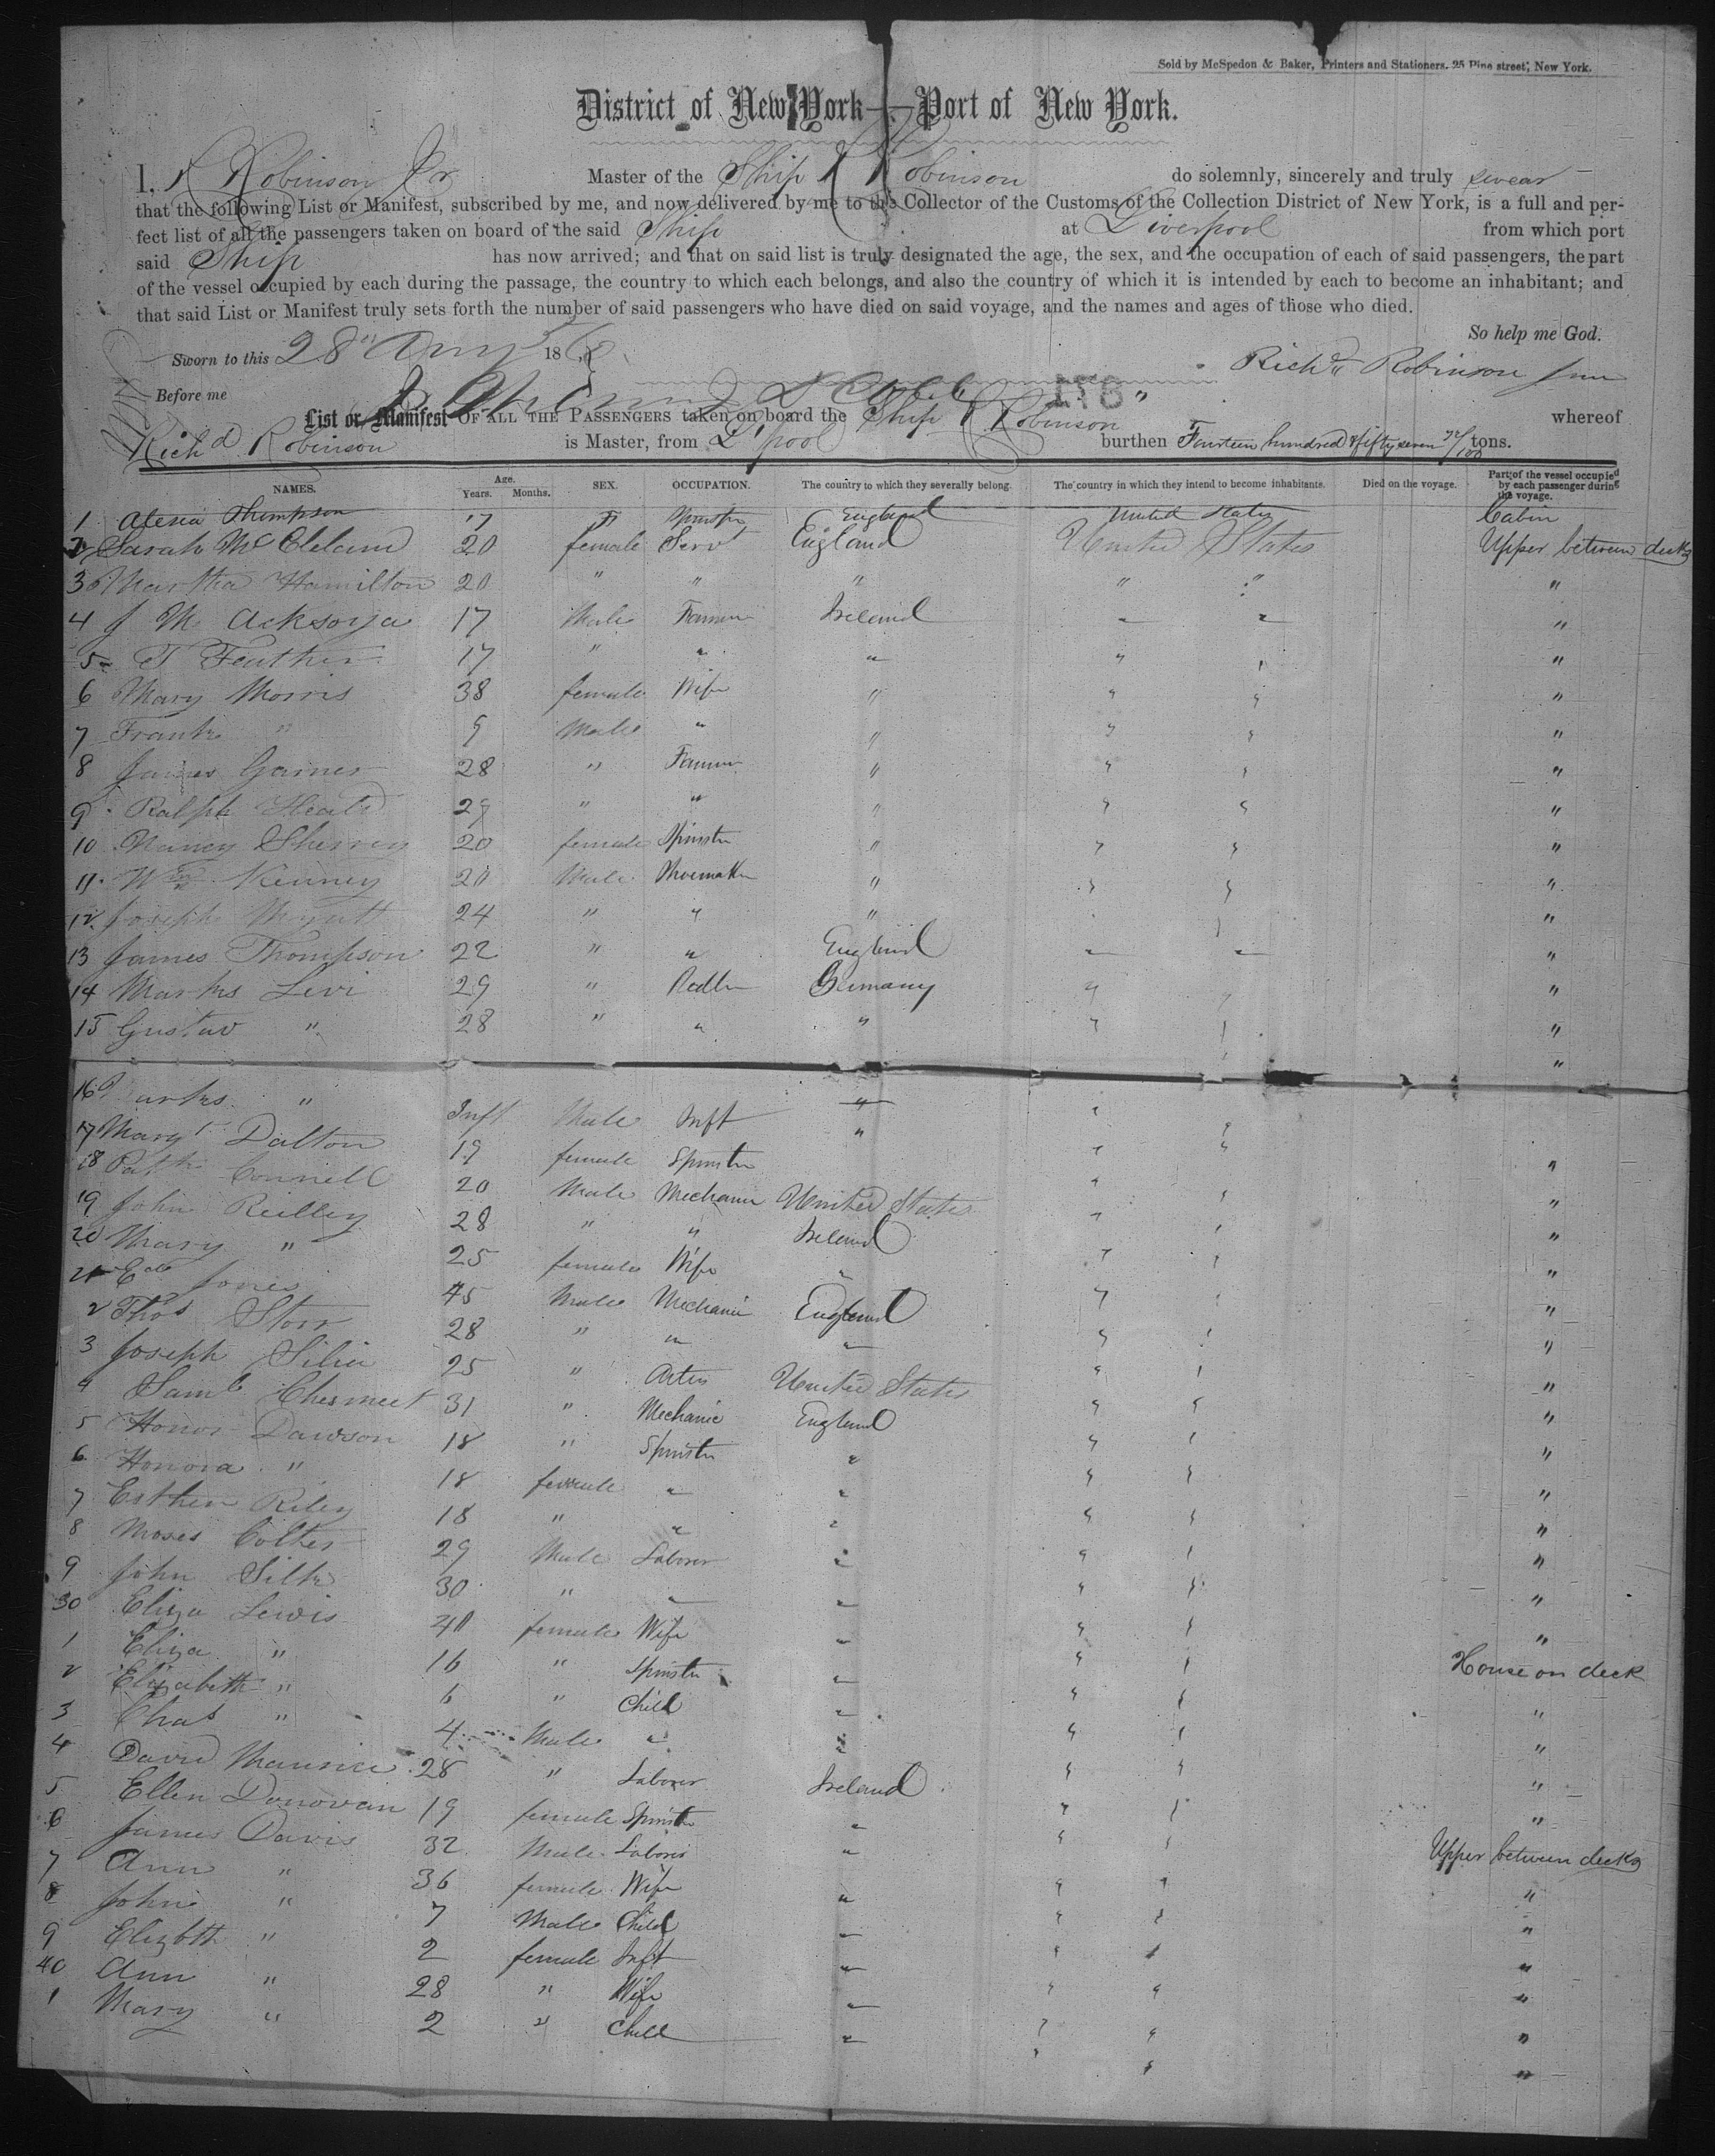 Sold by McSpedon & Baker, Printers and Stationers, 25 Pine street, New York.
District of New York — Port of New York.
I, R Robinson Jr Master of the Ship R Robinson do solemnly, sincerely and truly swear
that the following List or Manifest, subscribed by me, and now delivered by me to the Collector of the Customs of the Collection District of New York, is a full and per-
fect list of all the passengers taken on board of the said Ship at Liverpool from which port
said Ship has now arrived; and that on said list is truly designated the age, the sex, and the occupation of each of said passengers, the part
of the vessel occupied by each during the passage, the country to which each belongs, and also the country of which it is intended by each to become an inhabitant; and
that said List or Manifest truly sets forth the number of said passengers who have died on said voyage, and the names and ages of those who died.
So help me God.
Sworn to this 28" 186
Richd Robinson Jun
Before me 178
List or Manifest OF ALL THE PASSENGERS taken on board the Ship R Robinson whereof
Richd Robinson is Master, from L'pool burthen Fourteen hundred & fifty seven 72/100 tons.
NAMES. Age. Years. Months. SEX. OCCUPATION. The country to which they severally belong. The country in which they intend to become inhabitants. Died on the voyage. Part of the vessel occupied by each passenger during the voyage.
1 Thompson 17 F Spinster England United States Cabin
2 Sarah McCleland 20 female Servt England United States Upper between decks
3 Martha Hamilton 20 " " " " " "
4 J M 17 Male Farmer Ireland " " "
5 T 17 " " " " " "
6 Mary Morris 38 female Wife " " " "
7 Frank " 9 Male " " " " "
8 James Garner 28 " Farmer " " " "
9 Ralph Heald 29 " " " " " "
10 Nancy Sherry 20 female Spinster " " " "
11 Wm Kenney 20 Male Shoemaker " " " "
12 Joseph 24 " " " " " "
13 James Thompson 22 " " England " " "
14 Marks Levi 29 " Pedler Germany " " "
15 Gustav " 28 " " " " " "
16 " Inft Male Inft " " " "
17 Mary Dalton 19 female Spinster " " " "
18 Patk Connell 20 Male Mechanic United States " " "
19 John Reilley 28 " " Ireland " " "
20 Mary " 25 female Wife " " " "
21 Edw Jones 45 Male Mechanic England " " "
2 Thos Storr 28 " " " " " "
3 Joseph Silia 25 " United States " " "
4 Saml 31 " Mechanic England " " "
5 Honor Dawson 18 " Spinster " " " "
6 Honora " 18 female " " " " "
7 Esther Riley 18 " " " " " "
8 Moses 29 Male Laborer " " " "
9 John Silk 30 " " " " " "
30 Eliza Lewis 40 female Wife " " " House on deck
1 Eliza " 16 " Spinster " " " "
2 Elizabeth " 6 " Child " " " "
3 Chas " 4 Male " " " " "
4 David Maurice 28 " Laborer Ireland " " "
5 Ellen Donovan 19 female Spinster " " " Upper between decks
6 James Davis 32 Male Laborer " " " "
7 Ann " 36 female Wife " " " "
8 John " 7 Male Child " " " "
9 Elizbth " 2 female Inft " " " "
40 Ann " 28 " Wife " " " "
1 Mary " 2 " Child " " " "